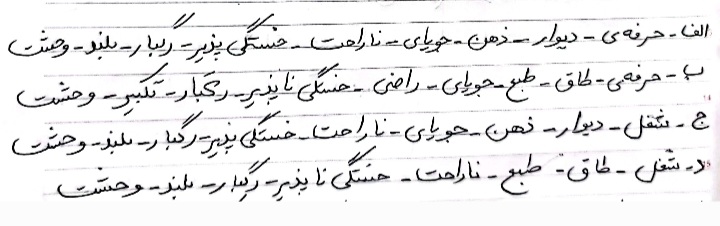 الف - حرفه‌ی - دیوار - ذهن - جویای - ناراحت - خستگی پذیر - رگبار - بلند - وحشت
ب - حرفه‌ی - طاق - طبع - جویای - راضی - خستگی ناپذیر - رگبار - تکبیر - وحشت
ج - شغل - دیوار - ذهن - جویای - ناراحت - خستگی پذیر - رگبار - بلند - وحشت
د - شغل - طاق - طبع - ناراحت - خستگی ناپذیر - رگبار - بلند - وحشت